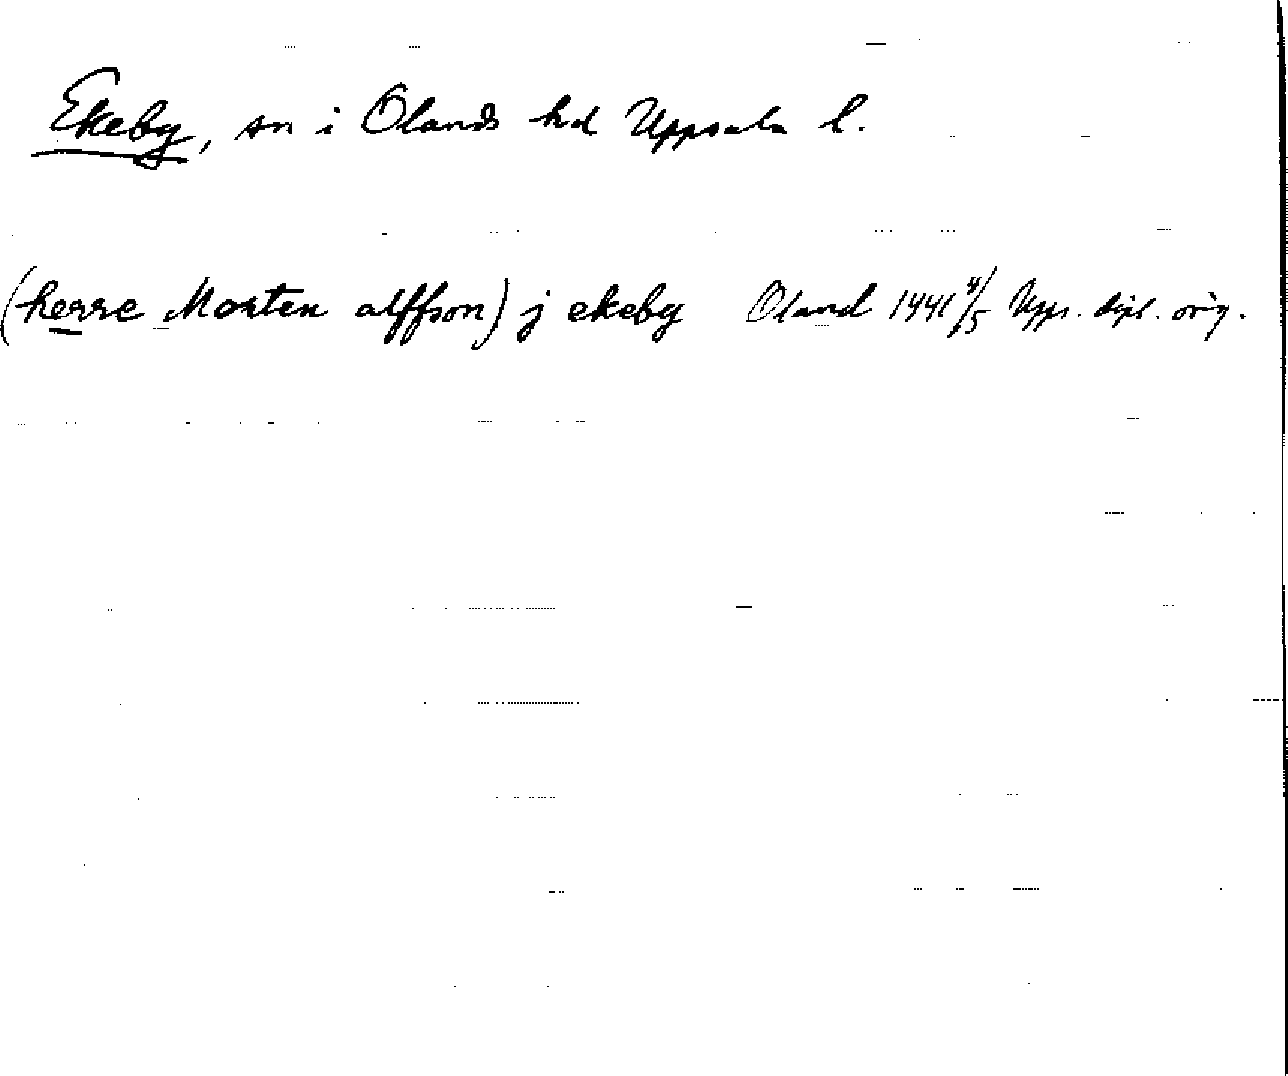 Ekeby, sn i Olands hd Uppsala l.
(herre Morten alffson) j ekeby Oland 1441 4/5 Upps. dipl. orig.